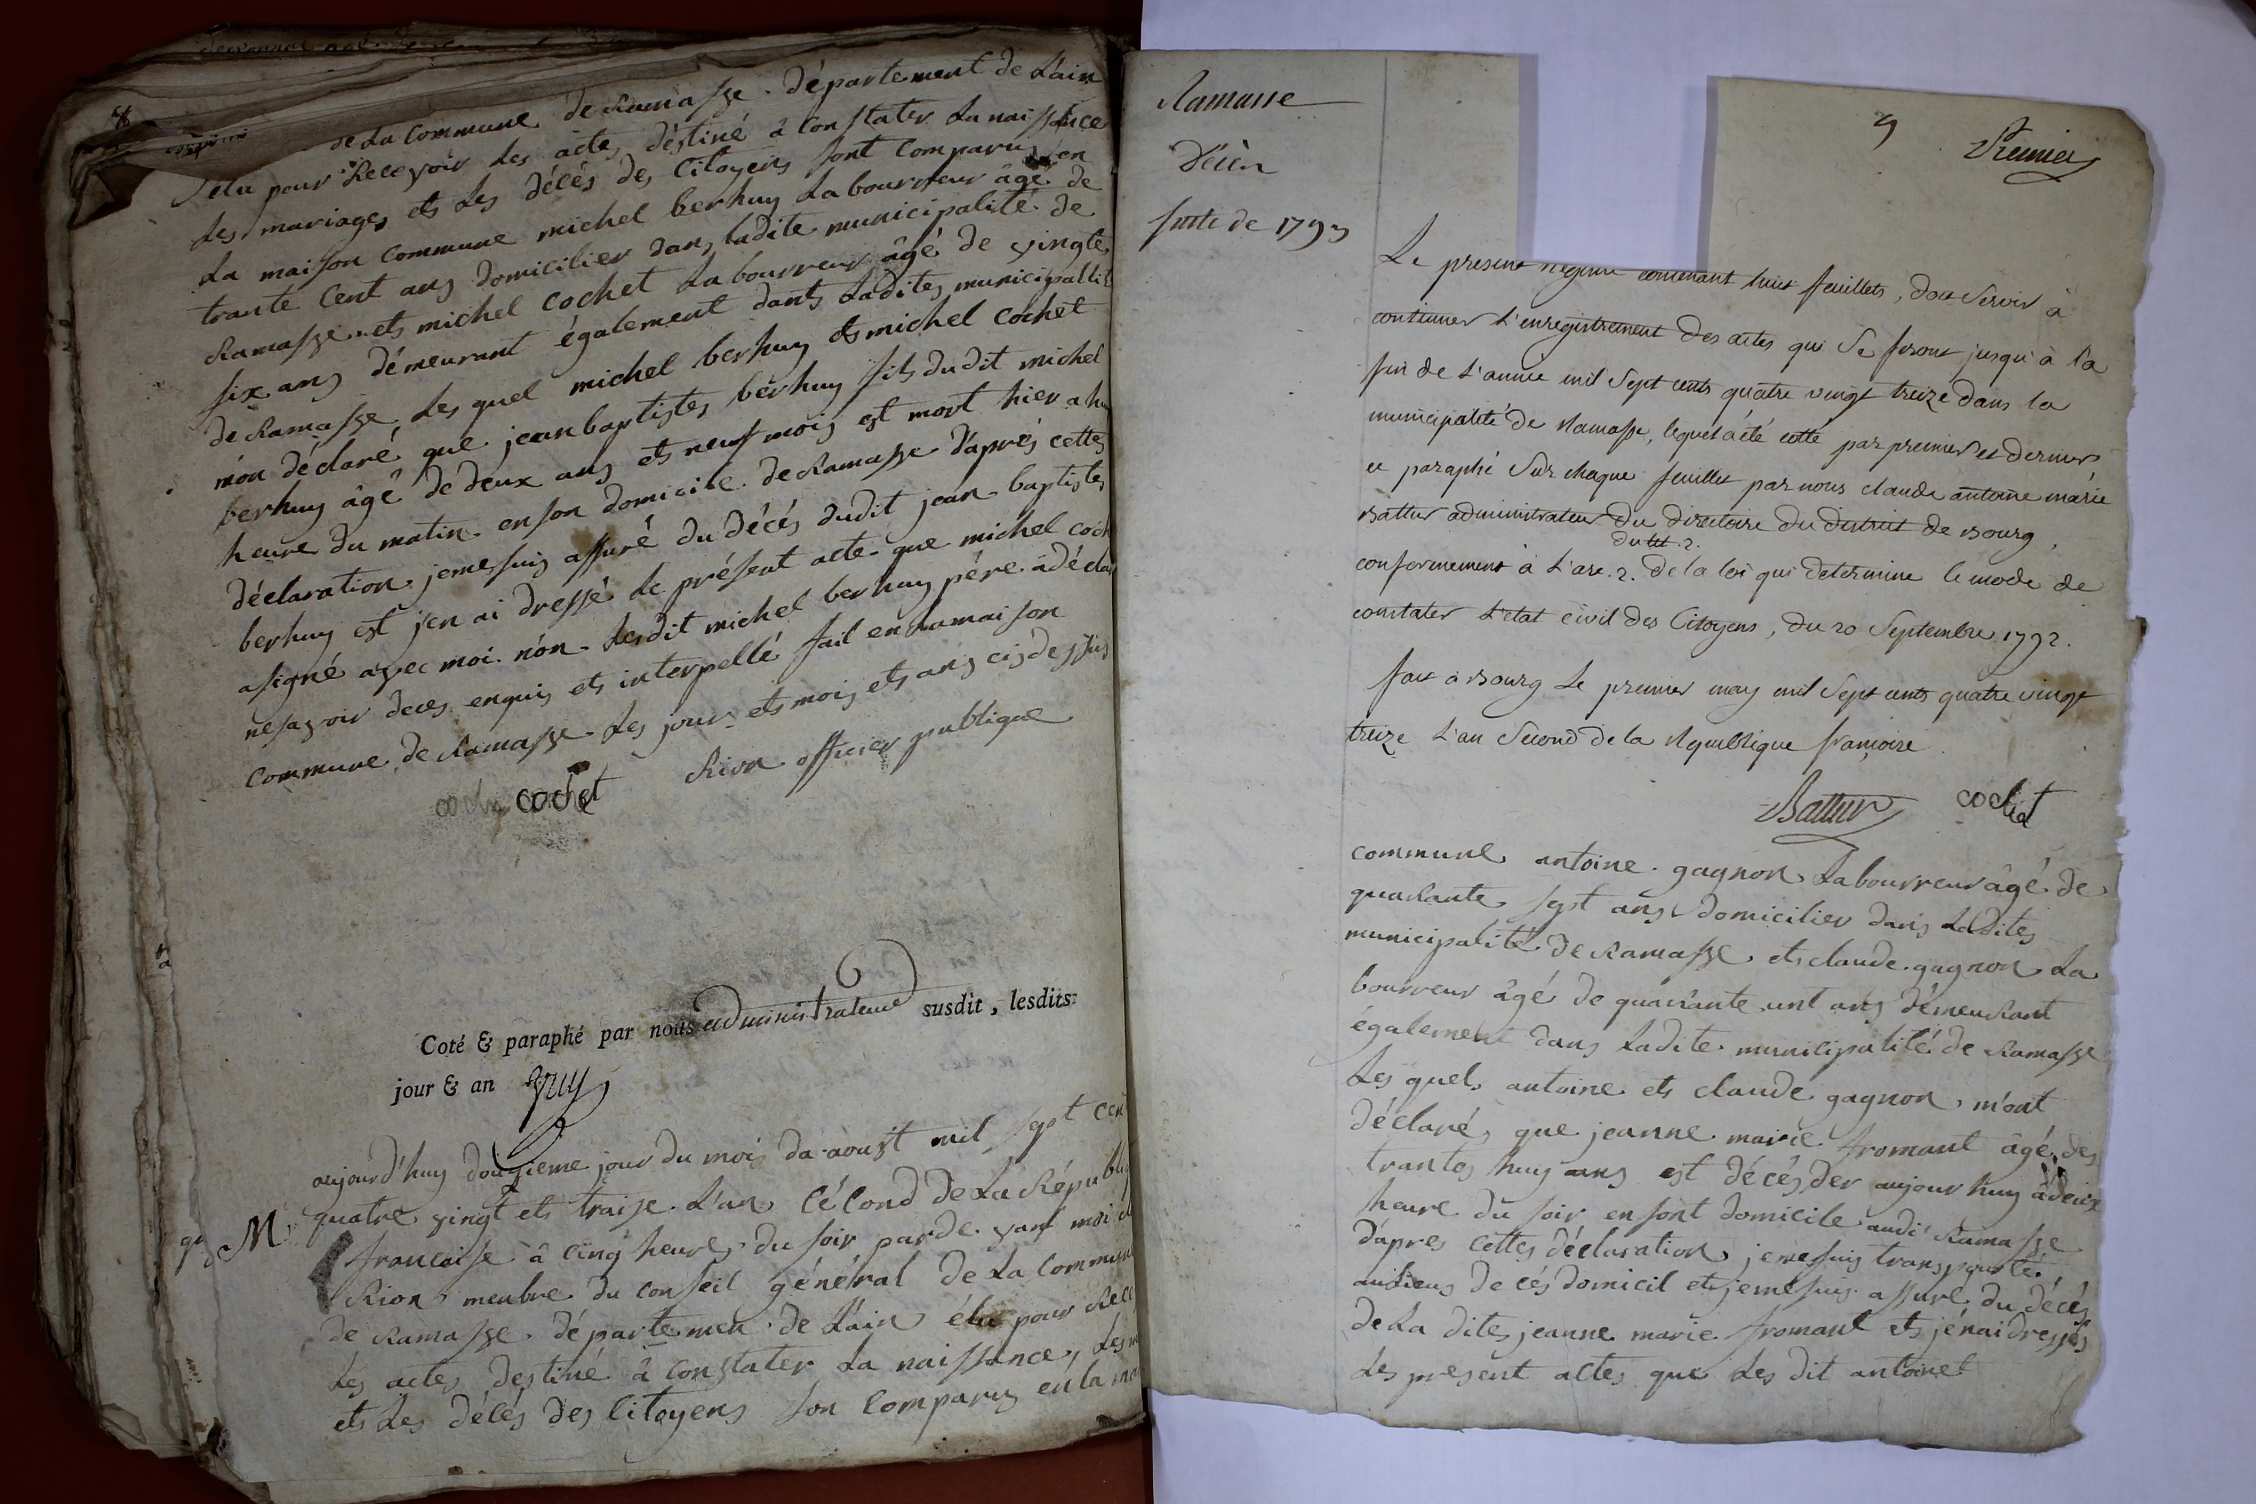 de La commune de Ramasse. département de L'ain
élu pour Recevoir les actes déstiné à constater La naissance
Les mariages ets Les décés des Citoyens sont comparus en
La maison commune michel berhuy Labourreur âgé de
trante Cent ans domicilier dans, ladite municipalité de
Ramasse. ets michel cochet Labourreur âgé de vingtes
six ans démeurant également dants Ladites municipallit
de Ramasse, Les quel michel berhuy ets michel cochet
món déclaré que jean baptistes berhuy fils du dit michel
berhuy âgé de deux ans ets neuf mois est mort hier a hu
heure du matin en son domicile de Ramasse d'aprés cettes
déclaration jeme suis assuré du décés dudit jean baptistes
berhuy est j'en ai dressé Le présent acte que michel coch
asigné avec moi nón Ledit michel berhuy pére à déclar
ne savoir deces enquis ets interpellé fail en lamaison
commune de Ramasse Les jour ets mois ets ans cis dessus
cochet Rion officier publique
Coté & paraphé par nous administrateur susdit, lesdits
jour & an
aujourd'huy douzieme jour du mois da aoust mil sept cen
quatre vingt ets traize L'an Cécond de La Républi
francaise à cinq heures du soir parde vant moi
Rion menbre du conseil général de La Commune
de Ramasse. département de L'ain élu pour Rece
Les actes destiné à constater La naissance, Les m
ets Les décés des Citoyens son comparus en la mai
Ramasse
Décès
suite de 1793
9 Premier
Le present registre contenant huit feuillets, doit servir à
continuer l'enregistrement des actes qui se feront jusqu'à la
fin de l'année mil sept cents quatre vingt treize dans la
municipalité de Ramasse, lequel a été cotté par premier et dernier
et paraphé sur chaque feuillet par nous claude antoine marie
Battur administrateur du directoire du district de Bourg,
du tit. 2.
conformement à l'art. 2. de la loi qui determine le mode de
constater l'etat civil des Citoyens, du 20 Septembre 1792.
fait à Bourg le premier may mil sept cents quatre vingt
treize l'an second de la Republique françoise
Battur cochet
commune antoine gagnon Labourreur âgé de
quarante sept ans domicilier dans Ladites
municipalité de Ramasse ets claude gagnon La
bourreur âgé de quarante unt ans démeurant
également dans Ladite municipalité de Ramasse
Les quel antoine ets claude gagnon m'ont
déclaré, que jeanne marie fromant âgé des
trantes huy ans est décés der aujour huy à deux
heure du soir en sont domicile audi Ramasse
d'apres cettes déclaration, jeme suis transporté
audieus de cés domicil ets jeme suis assuré du décés
de La dites jeanne marie fromant ets jénai dressés
Les present actes que Les dit antoinet